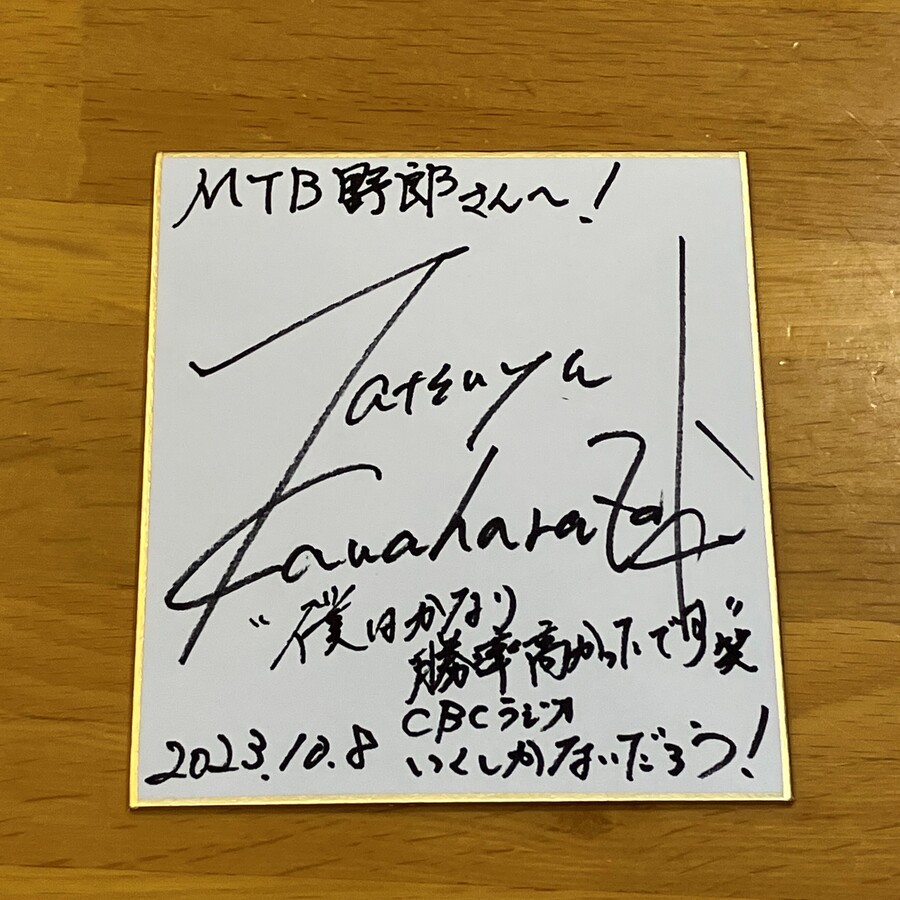 MTB野郎さんへ!
Tatsuya
Kawaharazaki
"僕はかなり
勝率高かったです"笑
CBCラジオ
2023.10.8 いくしかないだろう!